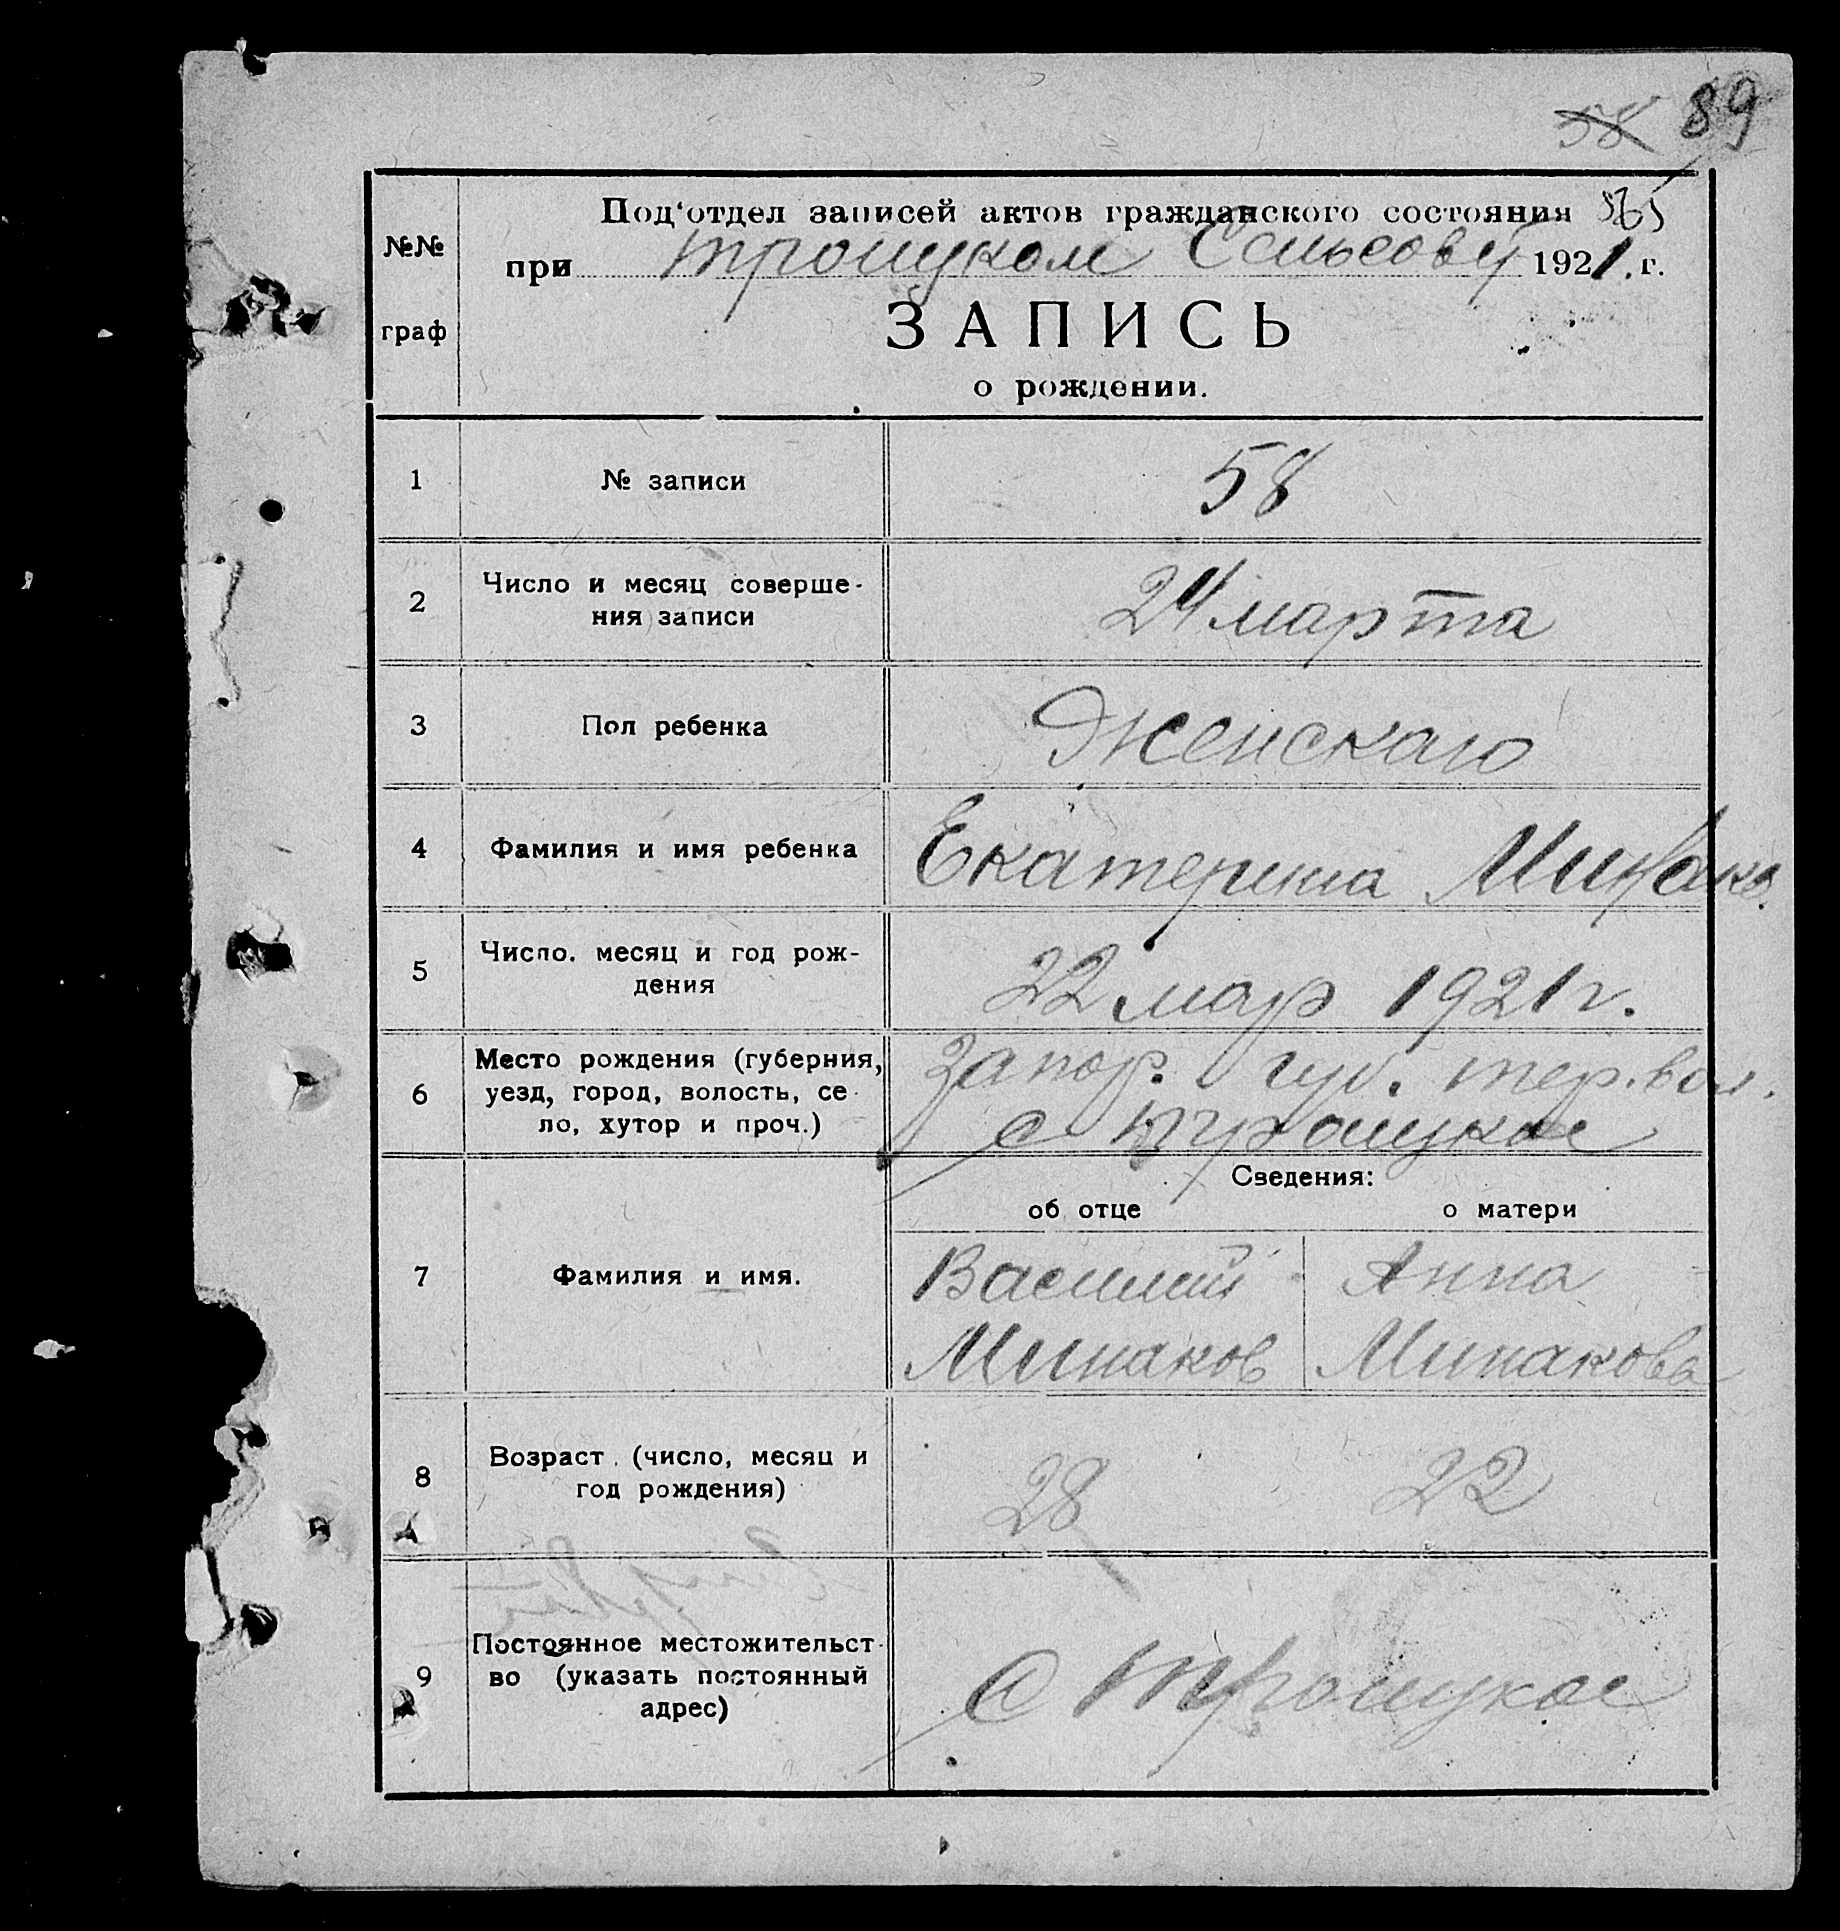 58 89
Под‘отдел записей актов гражданского состояния
№№
при троицком Сельсову 1921. г.
граф
ЗАПИСЬ
о рождении.
1 № записи 58
2 Число и месяц соверше-
ния записи 24 марта
3 Пол ребенка Женскаго
4 Фамилия и имя ребенка Екатерина
5 Число. месяц и год рож-
дения 22 мар 1921 г.
6 Место рождения (губерния,
уезд, город, волость, се-
ло, хутор и проч.) Запор. губ. тер. вол.
с троицкое
Сведения:
об отце о матери
7 Фамилия и имя. Василий Анна
Минаков Минакова
8 Возраст (число, месяц и
год рождения) 28 22
9 Постоянное местожительст-
во (указать постоянный
адрес) с троицкое